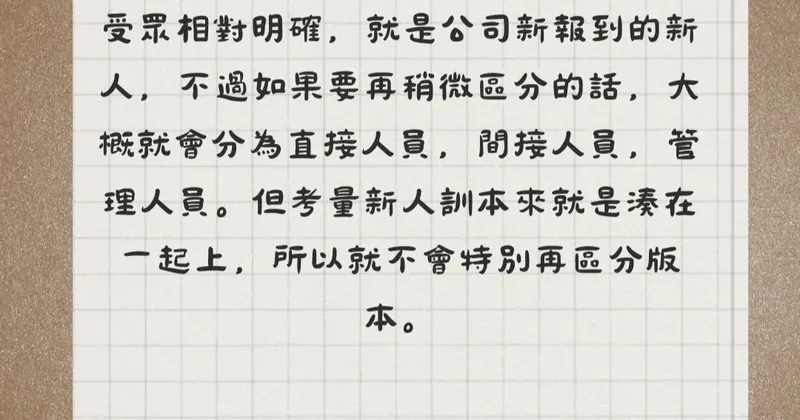 受眾相對明確，就是公司新報到的新
人，不過如果要再稍微區分的話，大
概就會分為直接人員，間接人員，管
理人員。但考量新人訓本來就是湊在
一起上，所以就不會特別再區分版
本。